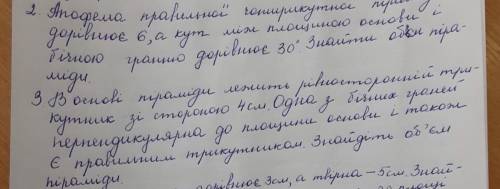 2. Апофема правильної чотирикутної
дорівнює 6, а кут між площиною основи і
бічною гранню дорівнює 30° Знайти об'єм піра-
міди.
3 В основі піраміди лежить рівносторонній три-
кутник зі стороною 4см. Одна з бічних граней
перпендикулярна до площини основи і також
є правильним трикутником. Знайдіть об'єм
піраміди.
дорівнює 3см, а твірна – 5см. Знай-
площі